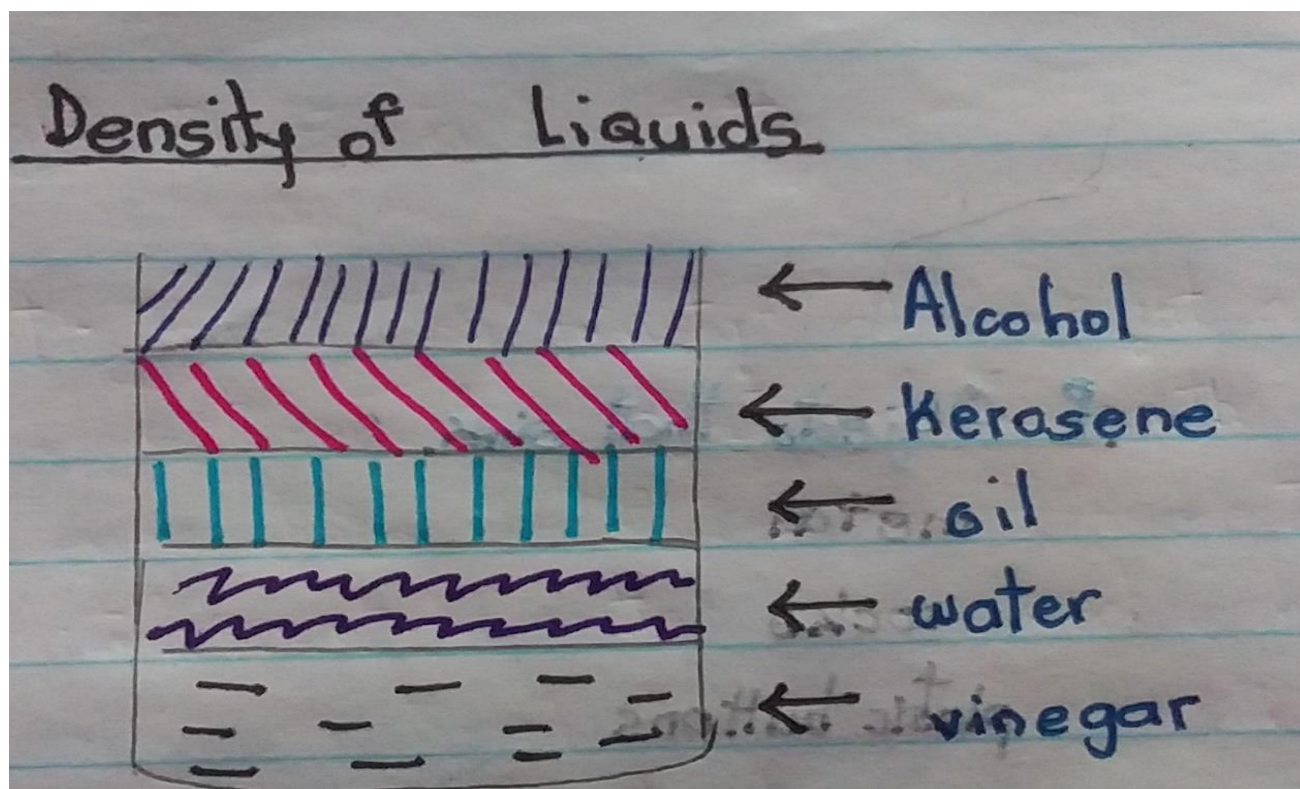 Density of Liquids
Alcohol
Kerosene
oil
water
vinegar